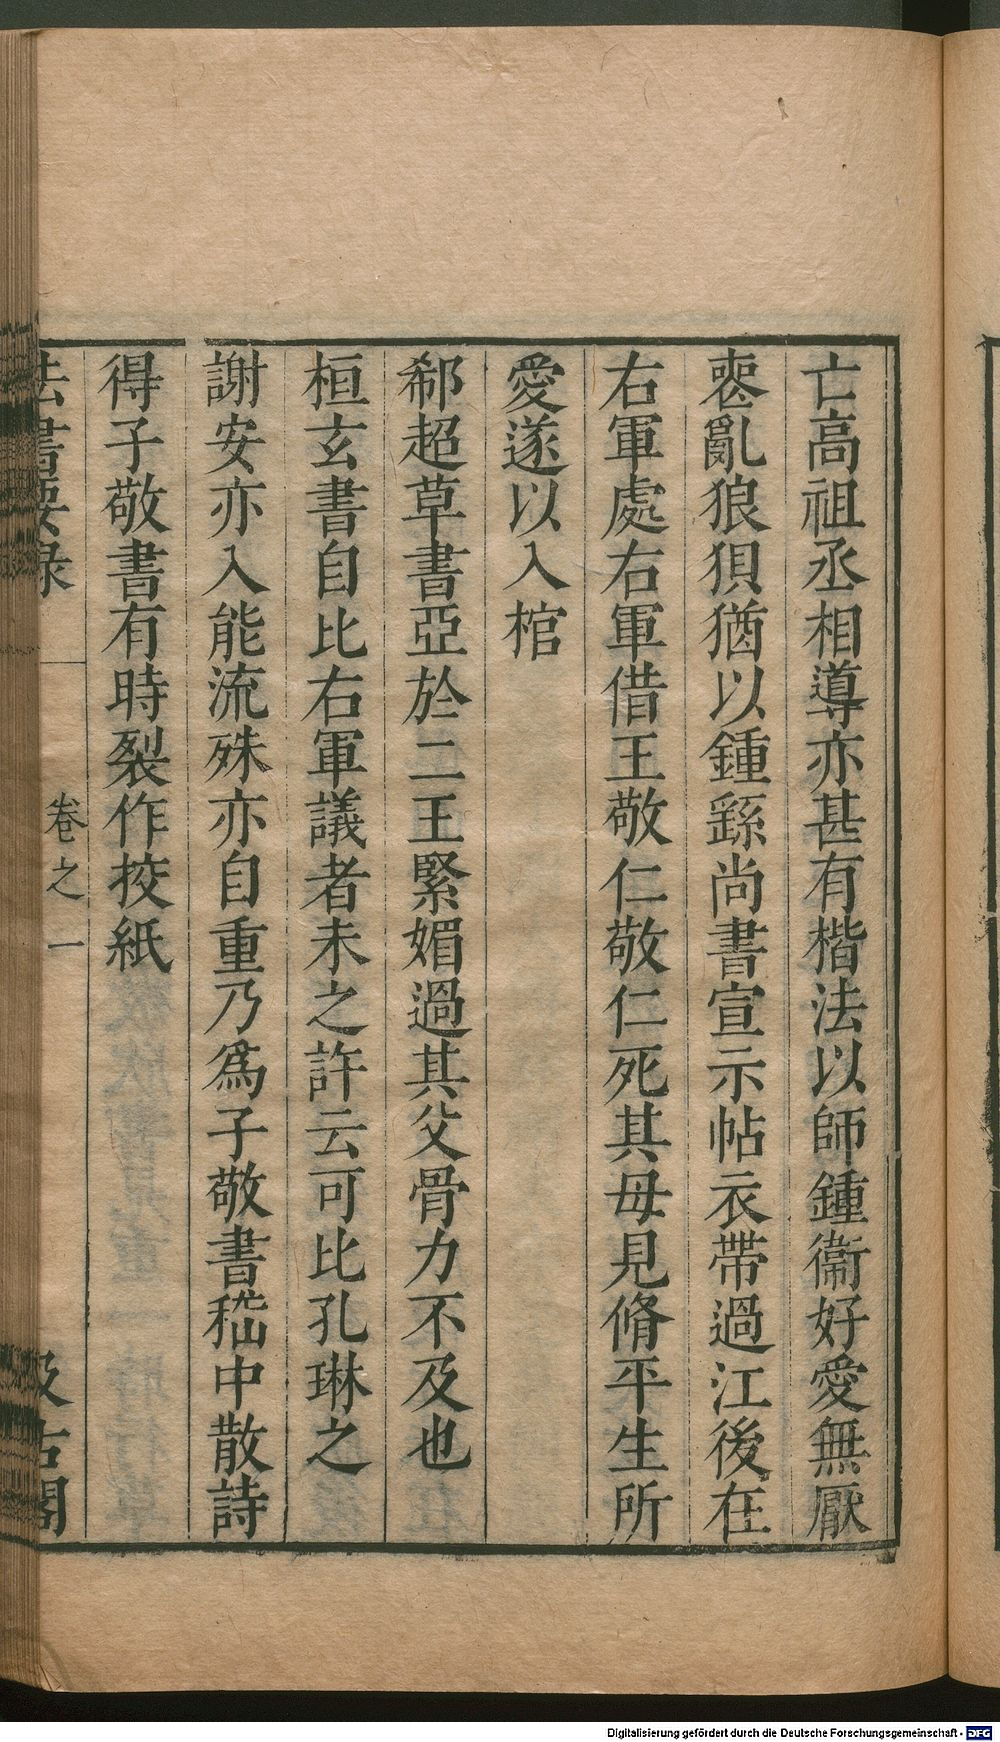 亡高祖丞相導亦甚有楷法以師鍾衞好愛無厭
喪亂狼狽猶以鍾繇尚書宣示帖衣帶過江後在
右軍處右軍借王敬仁敬仁死其母見脩平生所
愛遂以入棺
郗超草書亞於二王緊媚過其父骨力不及也
桓玄書自比右軍議者未之許云可比孔琳之
謝安亦入能流殊亦自重乃爲子敬書嵇中散詩
得子敬書有時裂作挍紙
法書要録 卷之一 汲古閣
Digitalisierung gefördert durch die Deutsche Forschungsgemeinschaft - DFG